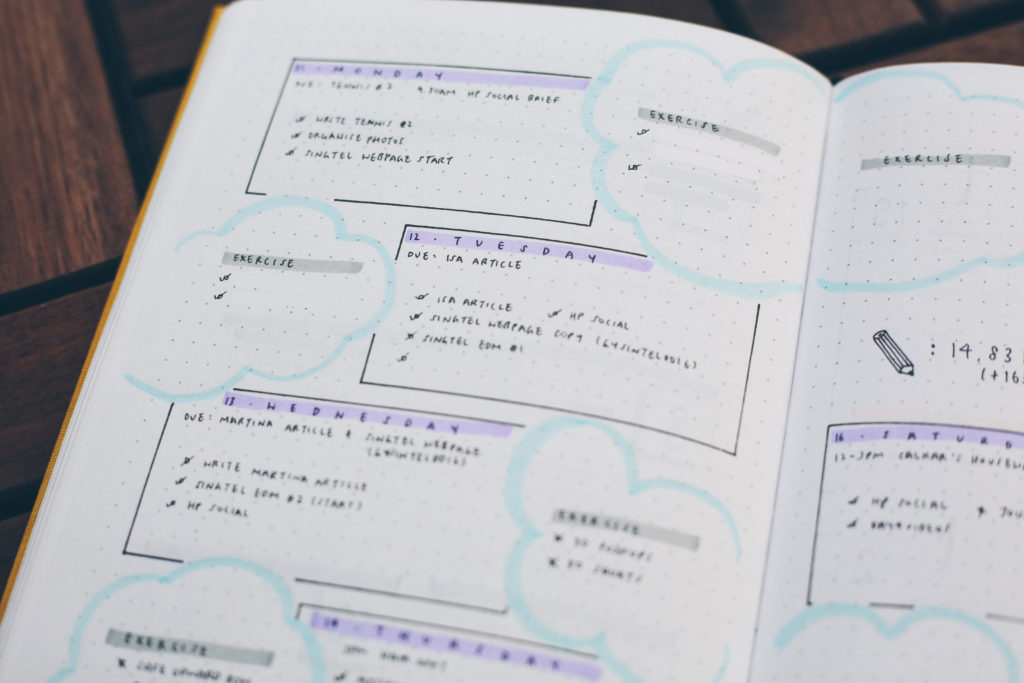 MONDAY
DUE: TENNIS #2 9.30AM HP SOCIAL BRIEF
WRITE TENNIS #2
ORGANISE PHOTOS
SINGTEL WEBPAGE START
EXERCISE
EXERCISE
12 · TUESDAY
DUE: ISA ARTICLE
ISA ARTICLE
HP SOCIAL
SINGTEL WEBPAGE COPY (64SINTEL0016)
SINGTEL EDM #1
13 · WEDNESDAY
DUE: MARTINA ARTICLE & SINGTEL WEBPAGE
(64SINTEL0016)
WRITE MARTINA ARTICLE
SINGTEL EDM #2 (START)
HP SOCIAL
EXERCISE
EXERCISE
THURSDAY
EXERCISE
: 14,83
(+16
16 · SATURD
12-3PM
HP SOCIAL